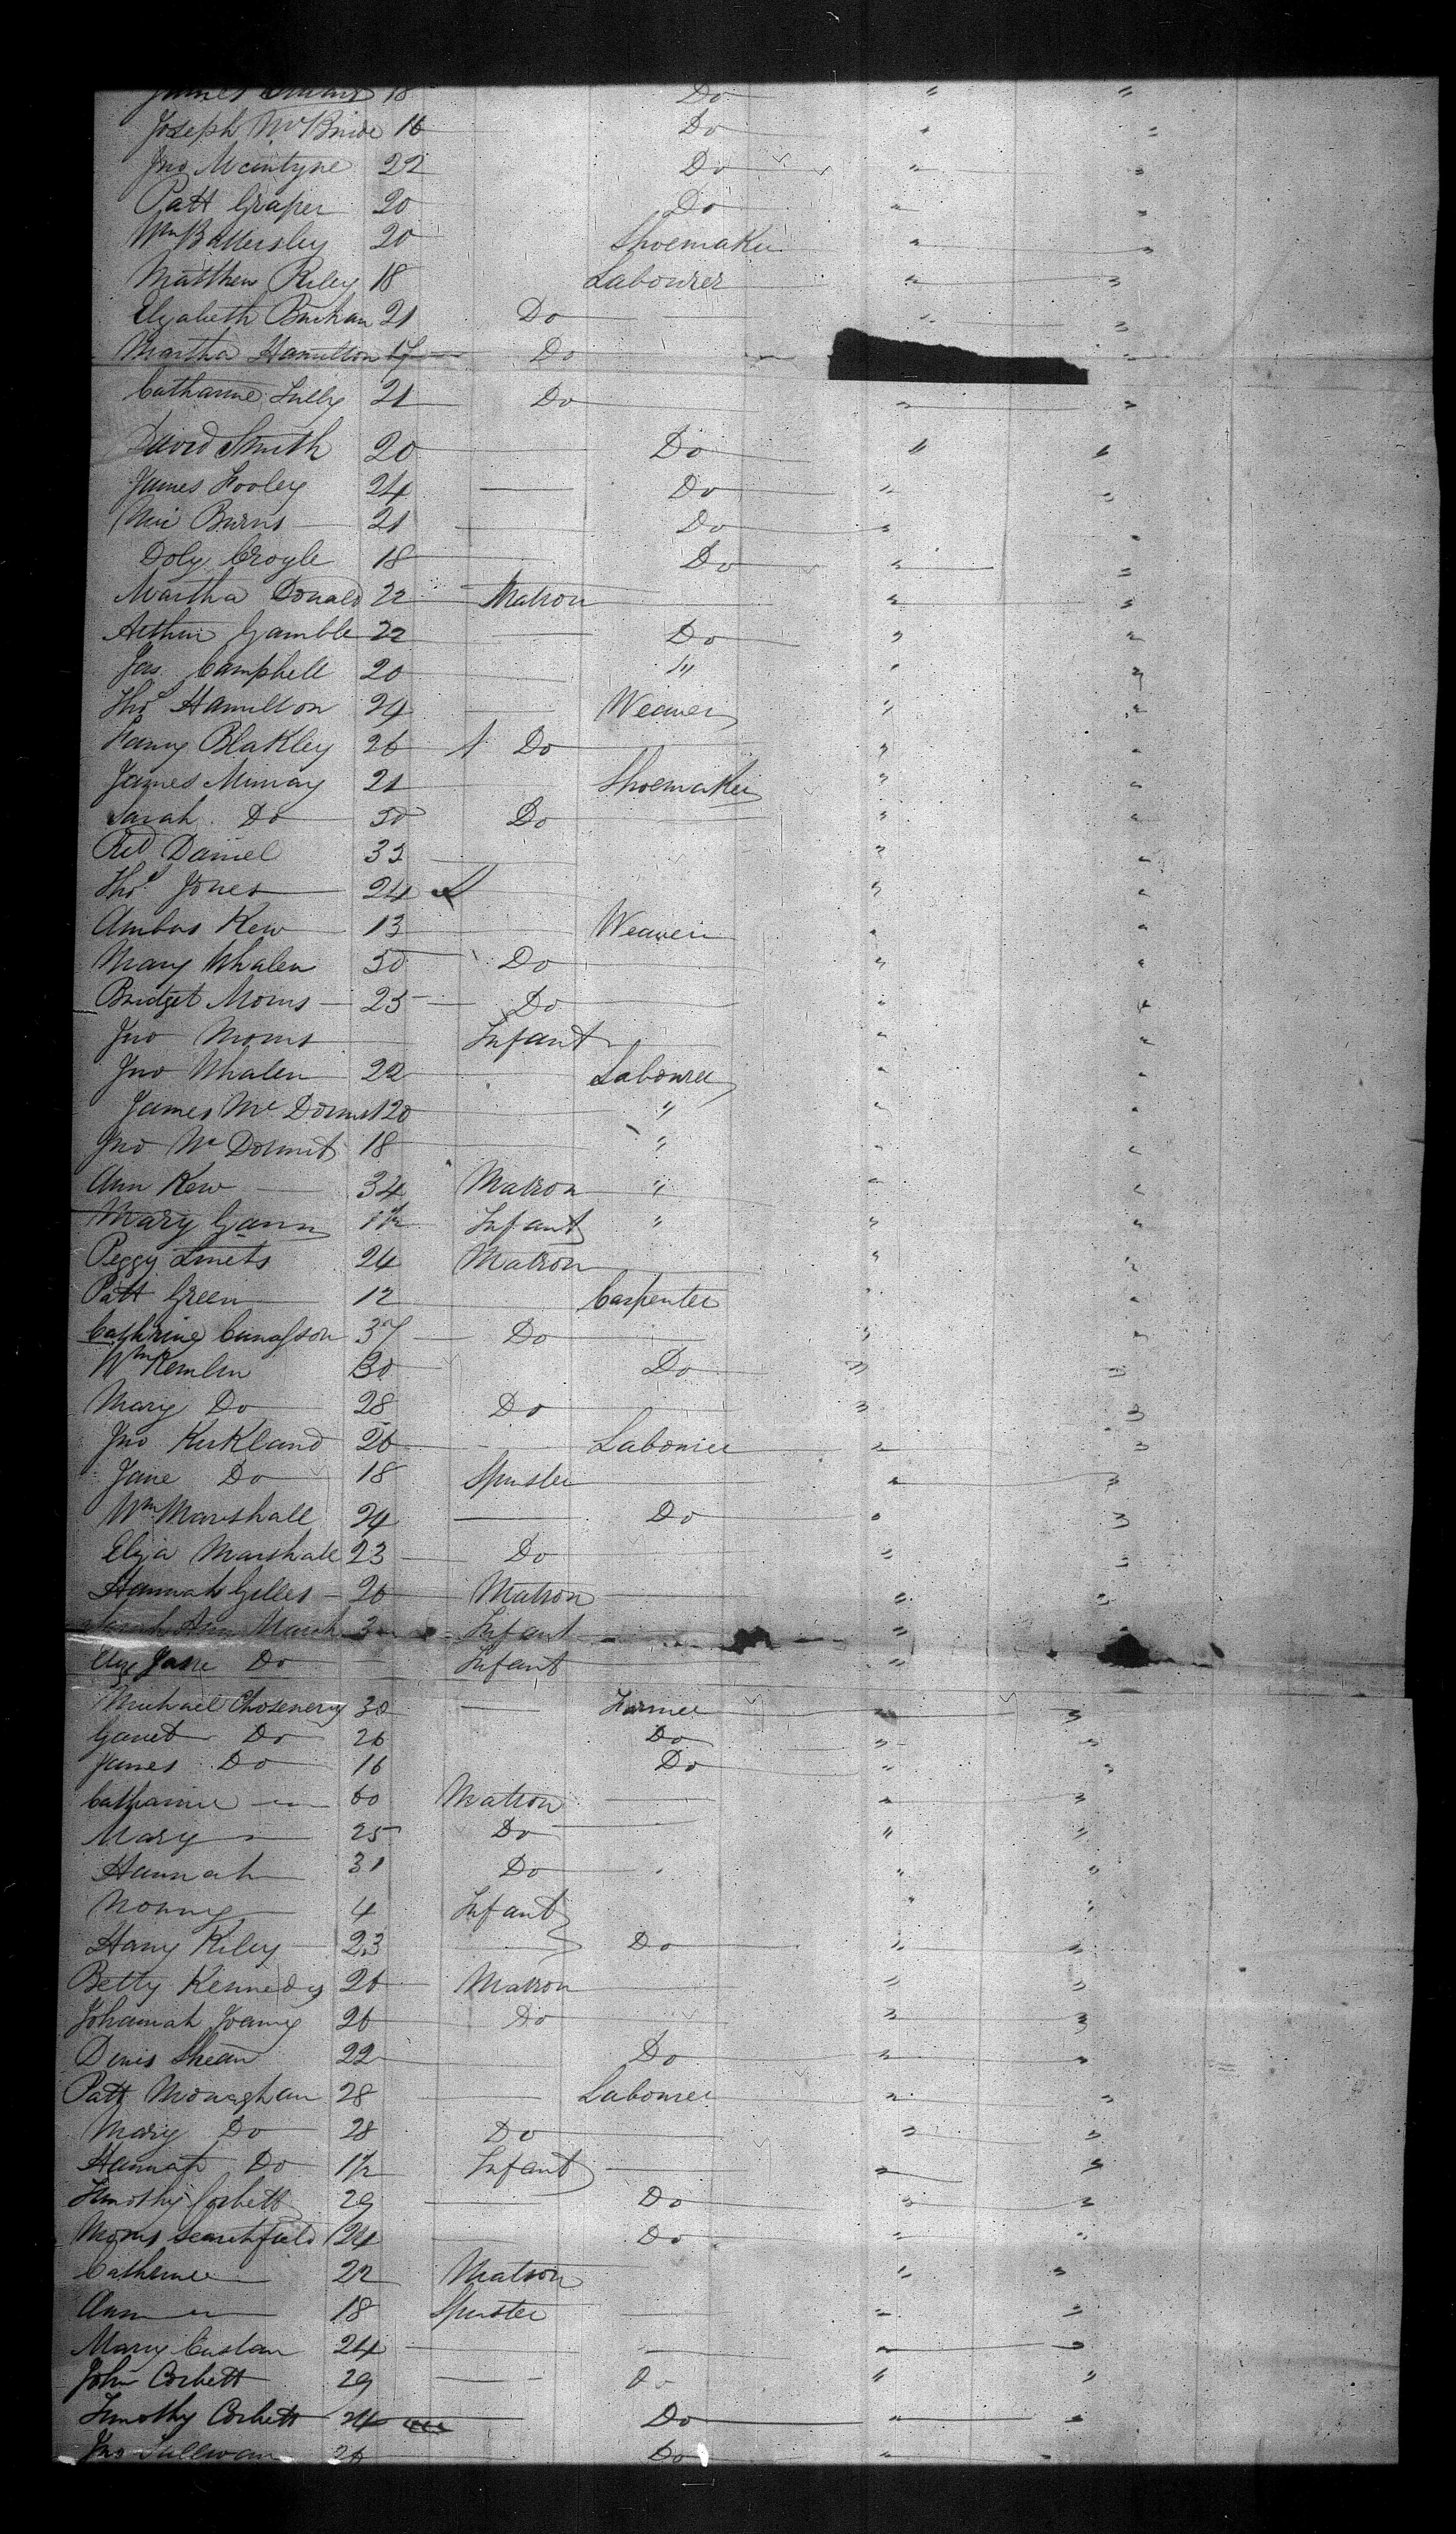 James 18 Do " "
Joseph McBride 16 Do " "
Jno Mcintyre 22 Do " "
Patt Graper 20 Do " "
Wm Battersley 20 Shoemaker " "
Matthew Riley 18 Labourer " "
Elizabeth 21 Do " "
Martha Hamilton 17 Do "
Catharine 21 Do " "
David Smith 20 Do " "
James Fooley 24 Do " "
Burns 21 Do " "
Doly Croyle 18 Do " "
Martha Donald 22 Matron " "
Arthur Gamble 22 Do " "
Jas Campbell 20 " " "
Thos Hamilton 24 Weaver " "
Fanny Blakley 26 Do " "
James Murray 21 Shoemaker " "
Sarah Do 50 Do " "
Daniel 33 " "
Thos Jones 24 " "
Kew 13 Weaver " "
Mary Whalen 50 Do " "
Bridget Morris 25 Do " "
Jno Morris Infant " "
Jno Whalen 22 Labourer " "
James Mc Dormit 20 " " "
Jno Mc Dormit 18 " " "
Ann Kew 34 Matron " " "
Mary Gann 1½ Infant " " "
Peggy 24 Matron " "
Patt Green 12 Carpenter " "
Cathrine 37 Do " "
Wm Kemlin 30 Do " "
Mary Do 28 Do " "
Jno Kirkland 26 Labourer " "
Jane Do 18 Spinster " "
Wm Marshall 24 Do " "
Eliza Marshall 23 Do " "
Hannah Gilles 26 Matron " "
Sarah Ann Marsh 3 Infant " "
Eliza Jane Do Infant "
Michael 30 Farmer " "
Garret Do 26 Do " "
James Do 16 Do " "
Catharine " 60 Matron " "
Mary " 25 Do " "
Hannah 31 Do " "
4 Infant " "
Harry Riley 23 Do " "
Betty Kennedy 26 Matron " "
Johannah 26 Do " "
Denis Shean 22 Do " "
Patt Monaghan 28 Labourer " "
Mary Do 28 Do " "
Hannah Do 1½ Infant " "
Timothy Corbett 29 Do " "
Morris 24 Do " "
Catherine 22 Matron " "
Ann " 18 Spinster " "
Mary 24 " "
John Corbett 29 Do " "
Timothy Corbett 24 Do " "
Jno Sullivan 26 Do " "